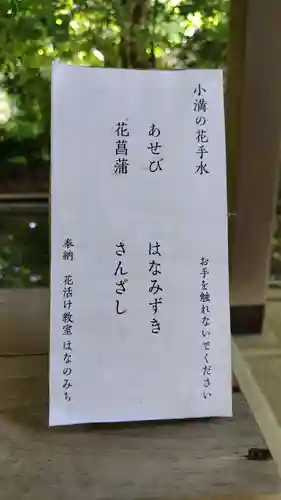 小満の花手水
お手を触れないでください
あせび
はなみずき
花菖蒲
さんざし
奉納 花活け教室 はなのみち